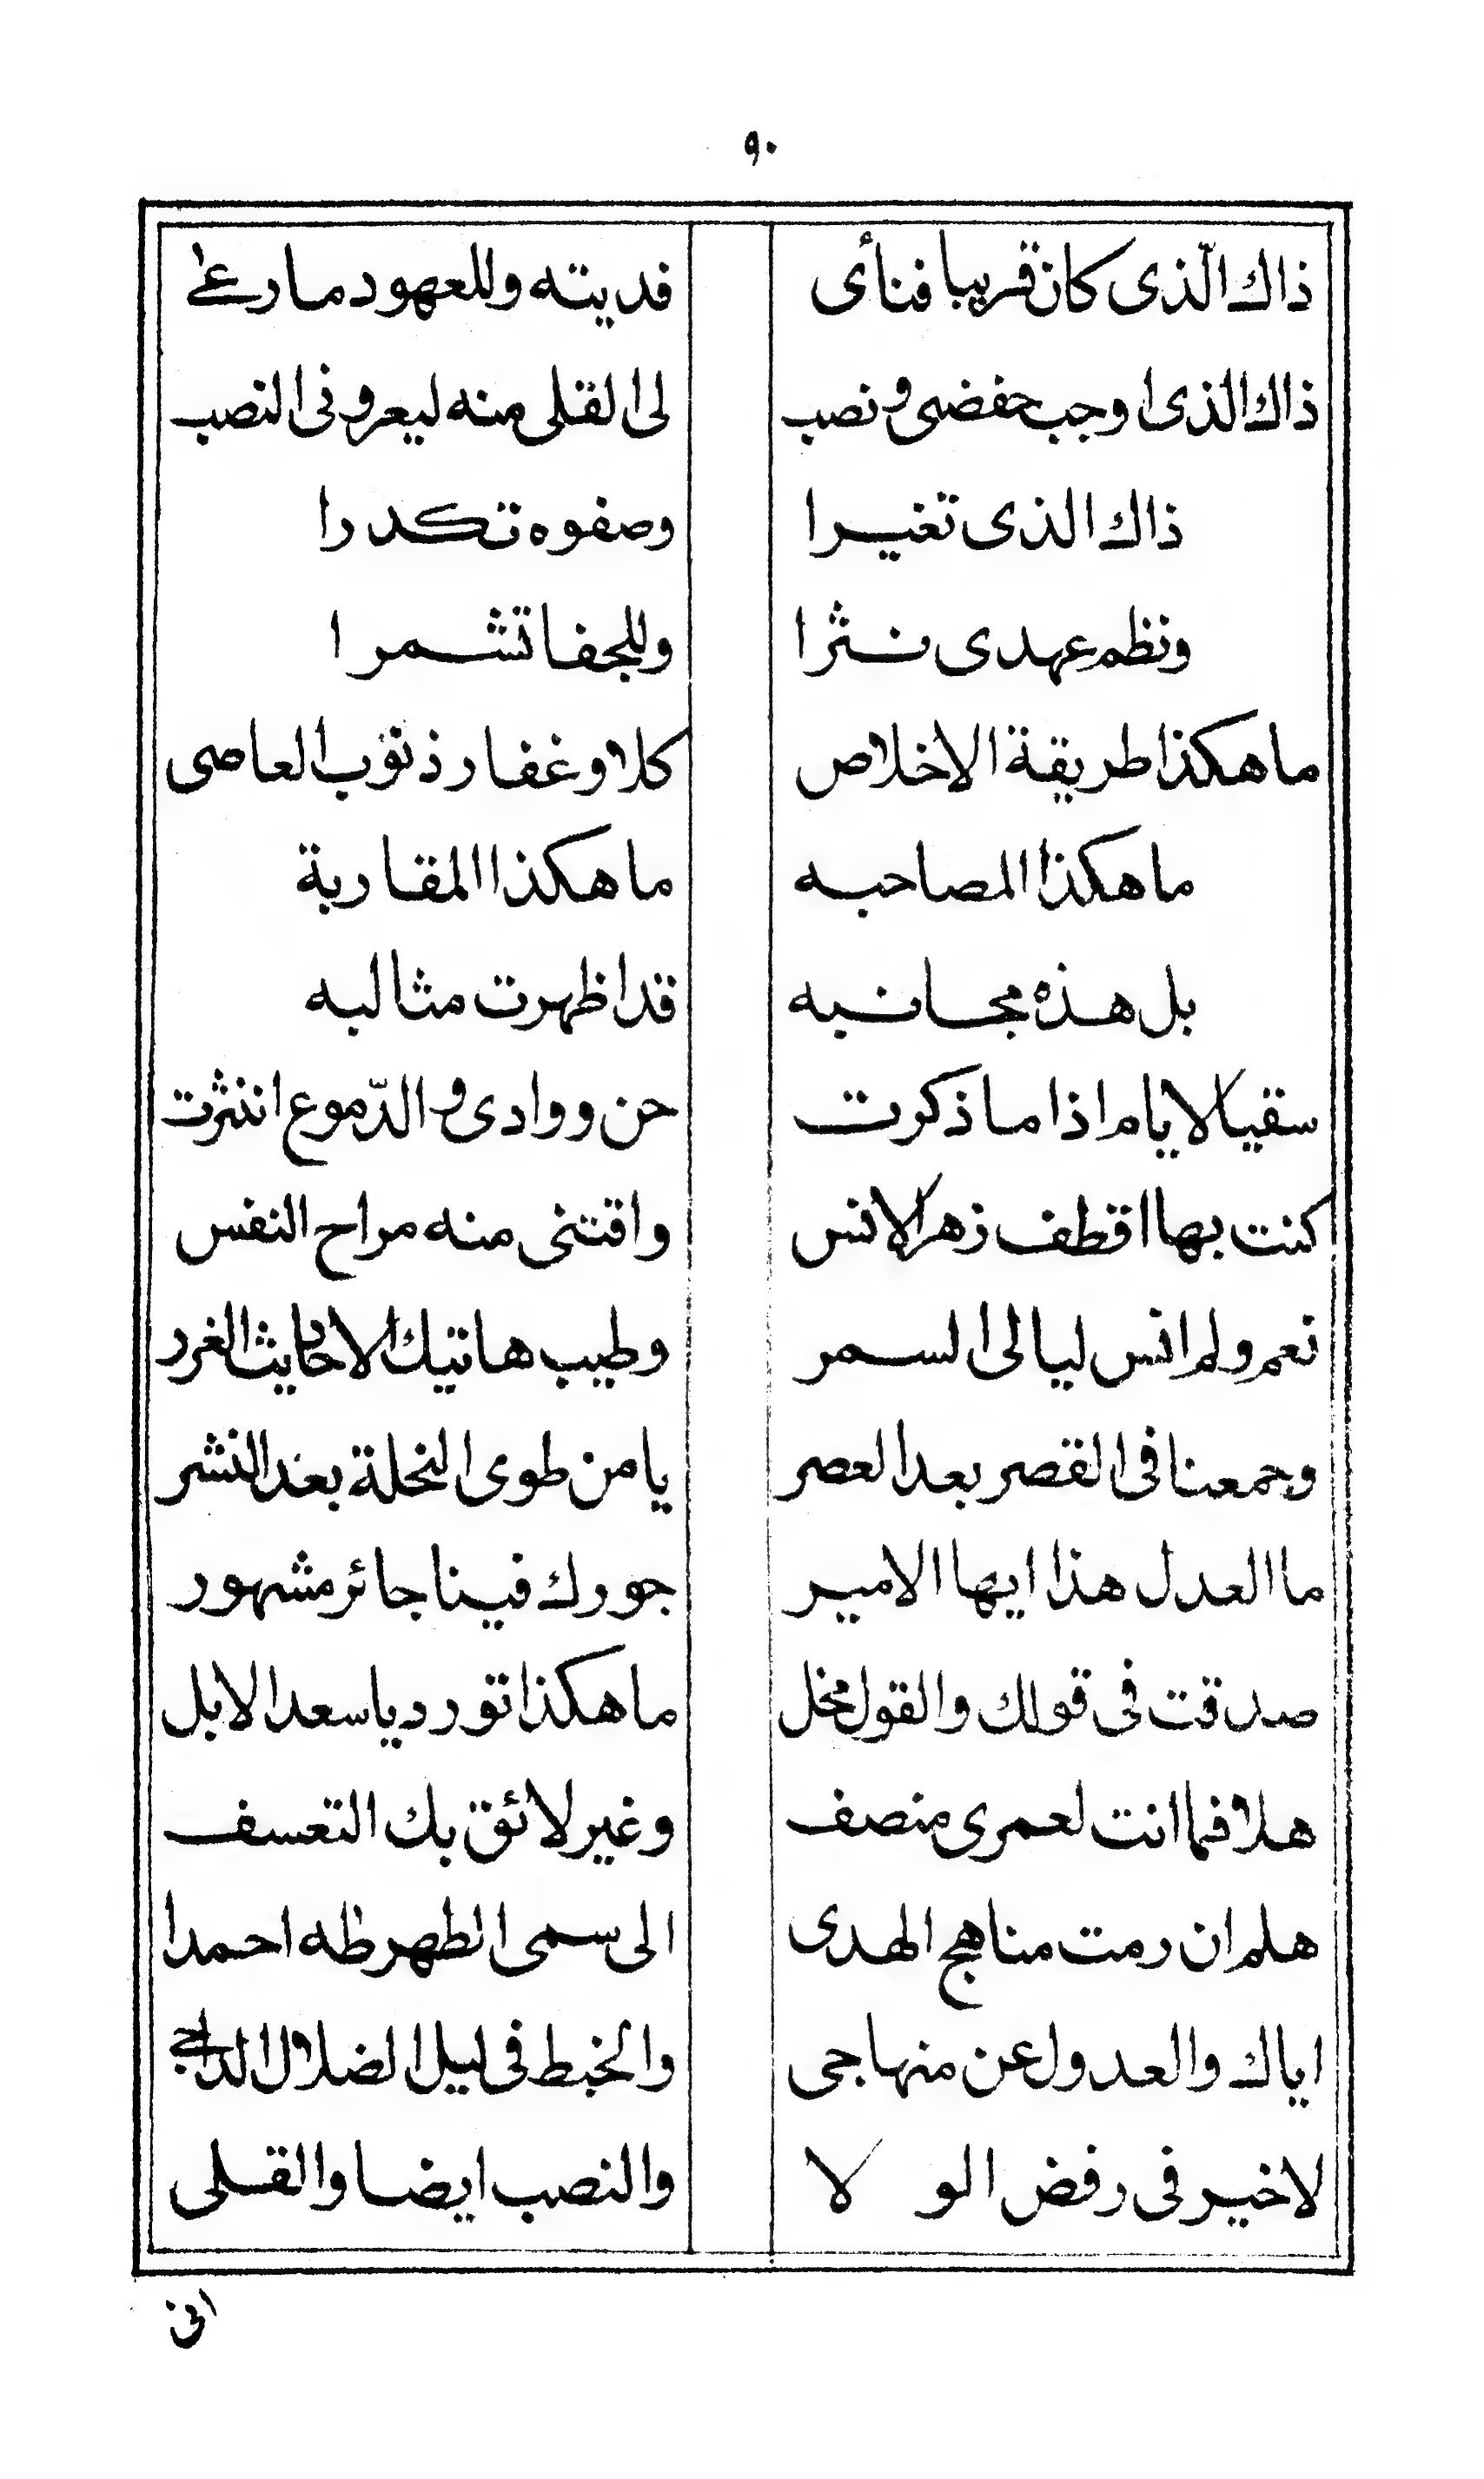 ٩٠
ذاك الّذى كان قريبا فنأى فديته وللعهود مارعى
ذاك الذى اوجب خفضى ونصب لى القلى منه ليعرونى النصب
ذاك الذى تغيرا وصفوه تكدرا
ونظم عهدى نثرا وللجفا تشمرا
ما هكذا طريقة الاخلاص كلا وغفار ذنوب العاصى
ما هكذا المصاحبه ما هكذا المقاربة
بل هذه مجانبه قد اظهرت مثالبه
سقيا لايام اذا ما ذكرت حن ووادى والدّموع انتثرت
كنت بها اقطف زهر الانس واقتنى منه مراح النفس
نعم ولم انس ليالى السمر وطيب هاتيك الاحاديث الغرر
وجمعنا فى القصر بعد العصر يا من طوى الخلة بعد النشر
ما العدل هذا ايها الامير جورك فينا جائر مشهور
صدقت فى قولك والقول مخل ما هكذا تورد يا سعد الابل
هلا فما انت لعمرى منصف وغير لائق بك التعسف
هلم ان رمت مناهج الهدى الى سمى الطهر طه احمدا
اياك والعدول عن منهاجى والخبط فى ليل الضلال الداجى
لا خير فى رفض الولا والنصب ايضا والقلى